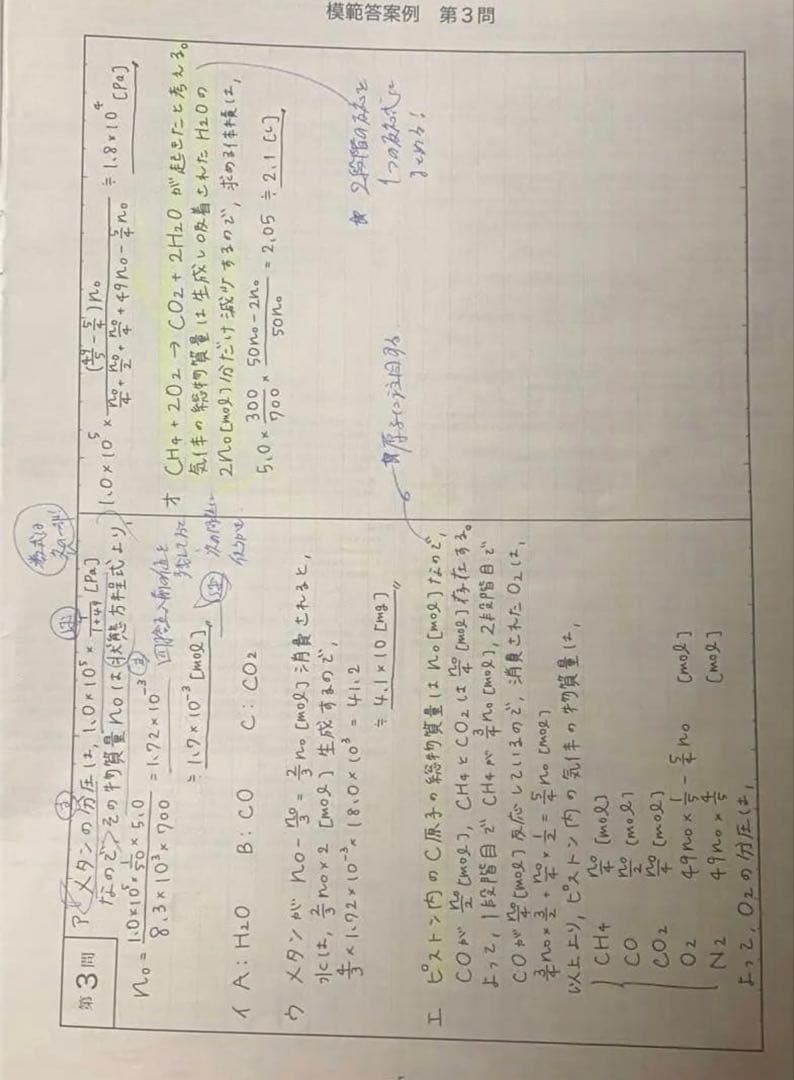 模範答案例　第3問
第3問
ア メタンの分圧は, 1.0×10⁵ × 1/(1+49) [Pa]
なので, その物質量 n₀ は 状態方程式より,
n₀ = (1.0×10⁵ × 1/50 × 5.0)/(8.3×10³×700) = 1.72×10⁻³
≒ 1.7×10⁻³ [mol]
イ A: H₂O　B: CO　C: CO₂
ウ メタンが n₀ - n₀/3 = 2/3 n₀ [mol] 消費されると,
水は, 2/3 n₀×2 [mol] 生成するので,
4/3 × 1.72×10⁻³ × 18.0×10³ = 41.2
≒ 4.1×10 [mg]
エ ピストン内のC原子の総物質量は n₀ [mol] なので,
COが n₀/2 [mol], CH₄とCO₂は n₀/4 [mol] 存在する。
よって, 1段階目で CH₄が 3/4 n₀ [mol], 2段階目で
COが n₀/4 [mol] 反応しているので, 消費されたO₂は,
3/4 n₀ × 3/2 + n₀/4 × 1/2 = 5/4 n₀ [mol]
以上より, ピストン内の気体の物質量は,
CH₄　n₀/4 [mol]
CO　n₀/2 [mol]
CO₂　n₀/4 [mol]
O₂　49n₀ × 1/5 - 5/4 n₀ [mol]
N₂　49n₀ × 4/5 [mol]
よって, O₂の分圧は,
1.0×10⁵ × (49/5 - 5/4)n₀/(n₀/4 + n₀/2 + n₀/4 + 49n₀ - 5/4 n₀) ≒ 1.8×10⁴ [Pa]
オ CH₄ + 2O₂ → CO₂ + 2H₂O が起きたと考える。
気体の総物質量は生成し吸着されたH₂Oの
2n₀ [mol] 分だけ減少するので, 求める体積は,
5.0 × 300/700 × (50n₀ - 2n₀)/50n₀ = 2.05 ≒ 2.1 [L]
2段階の反応を
1つの反応式に
まとめる!
原子に注目する